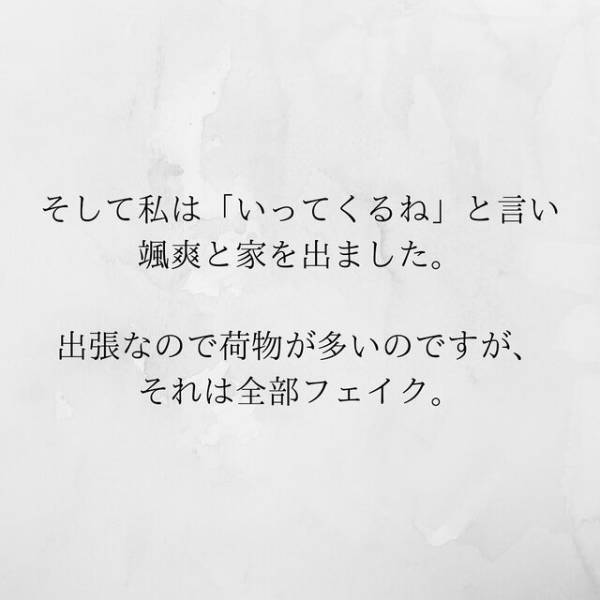 そして私は「いってくるね」と言い
颯爽と家を出ました。
出張なので荷物が多いのですが、
それは全部フェイク。